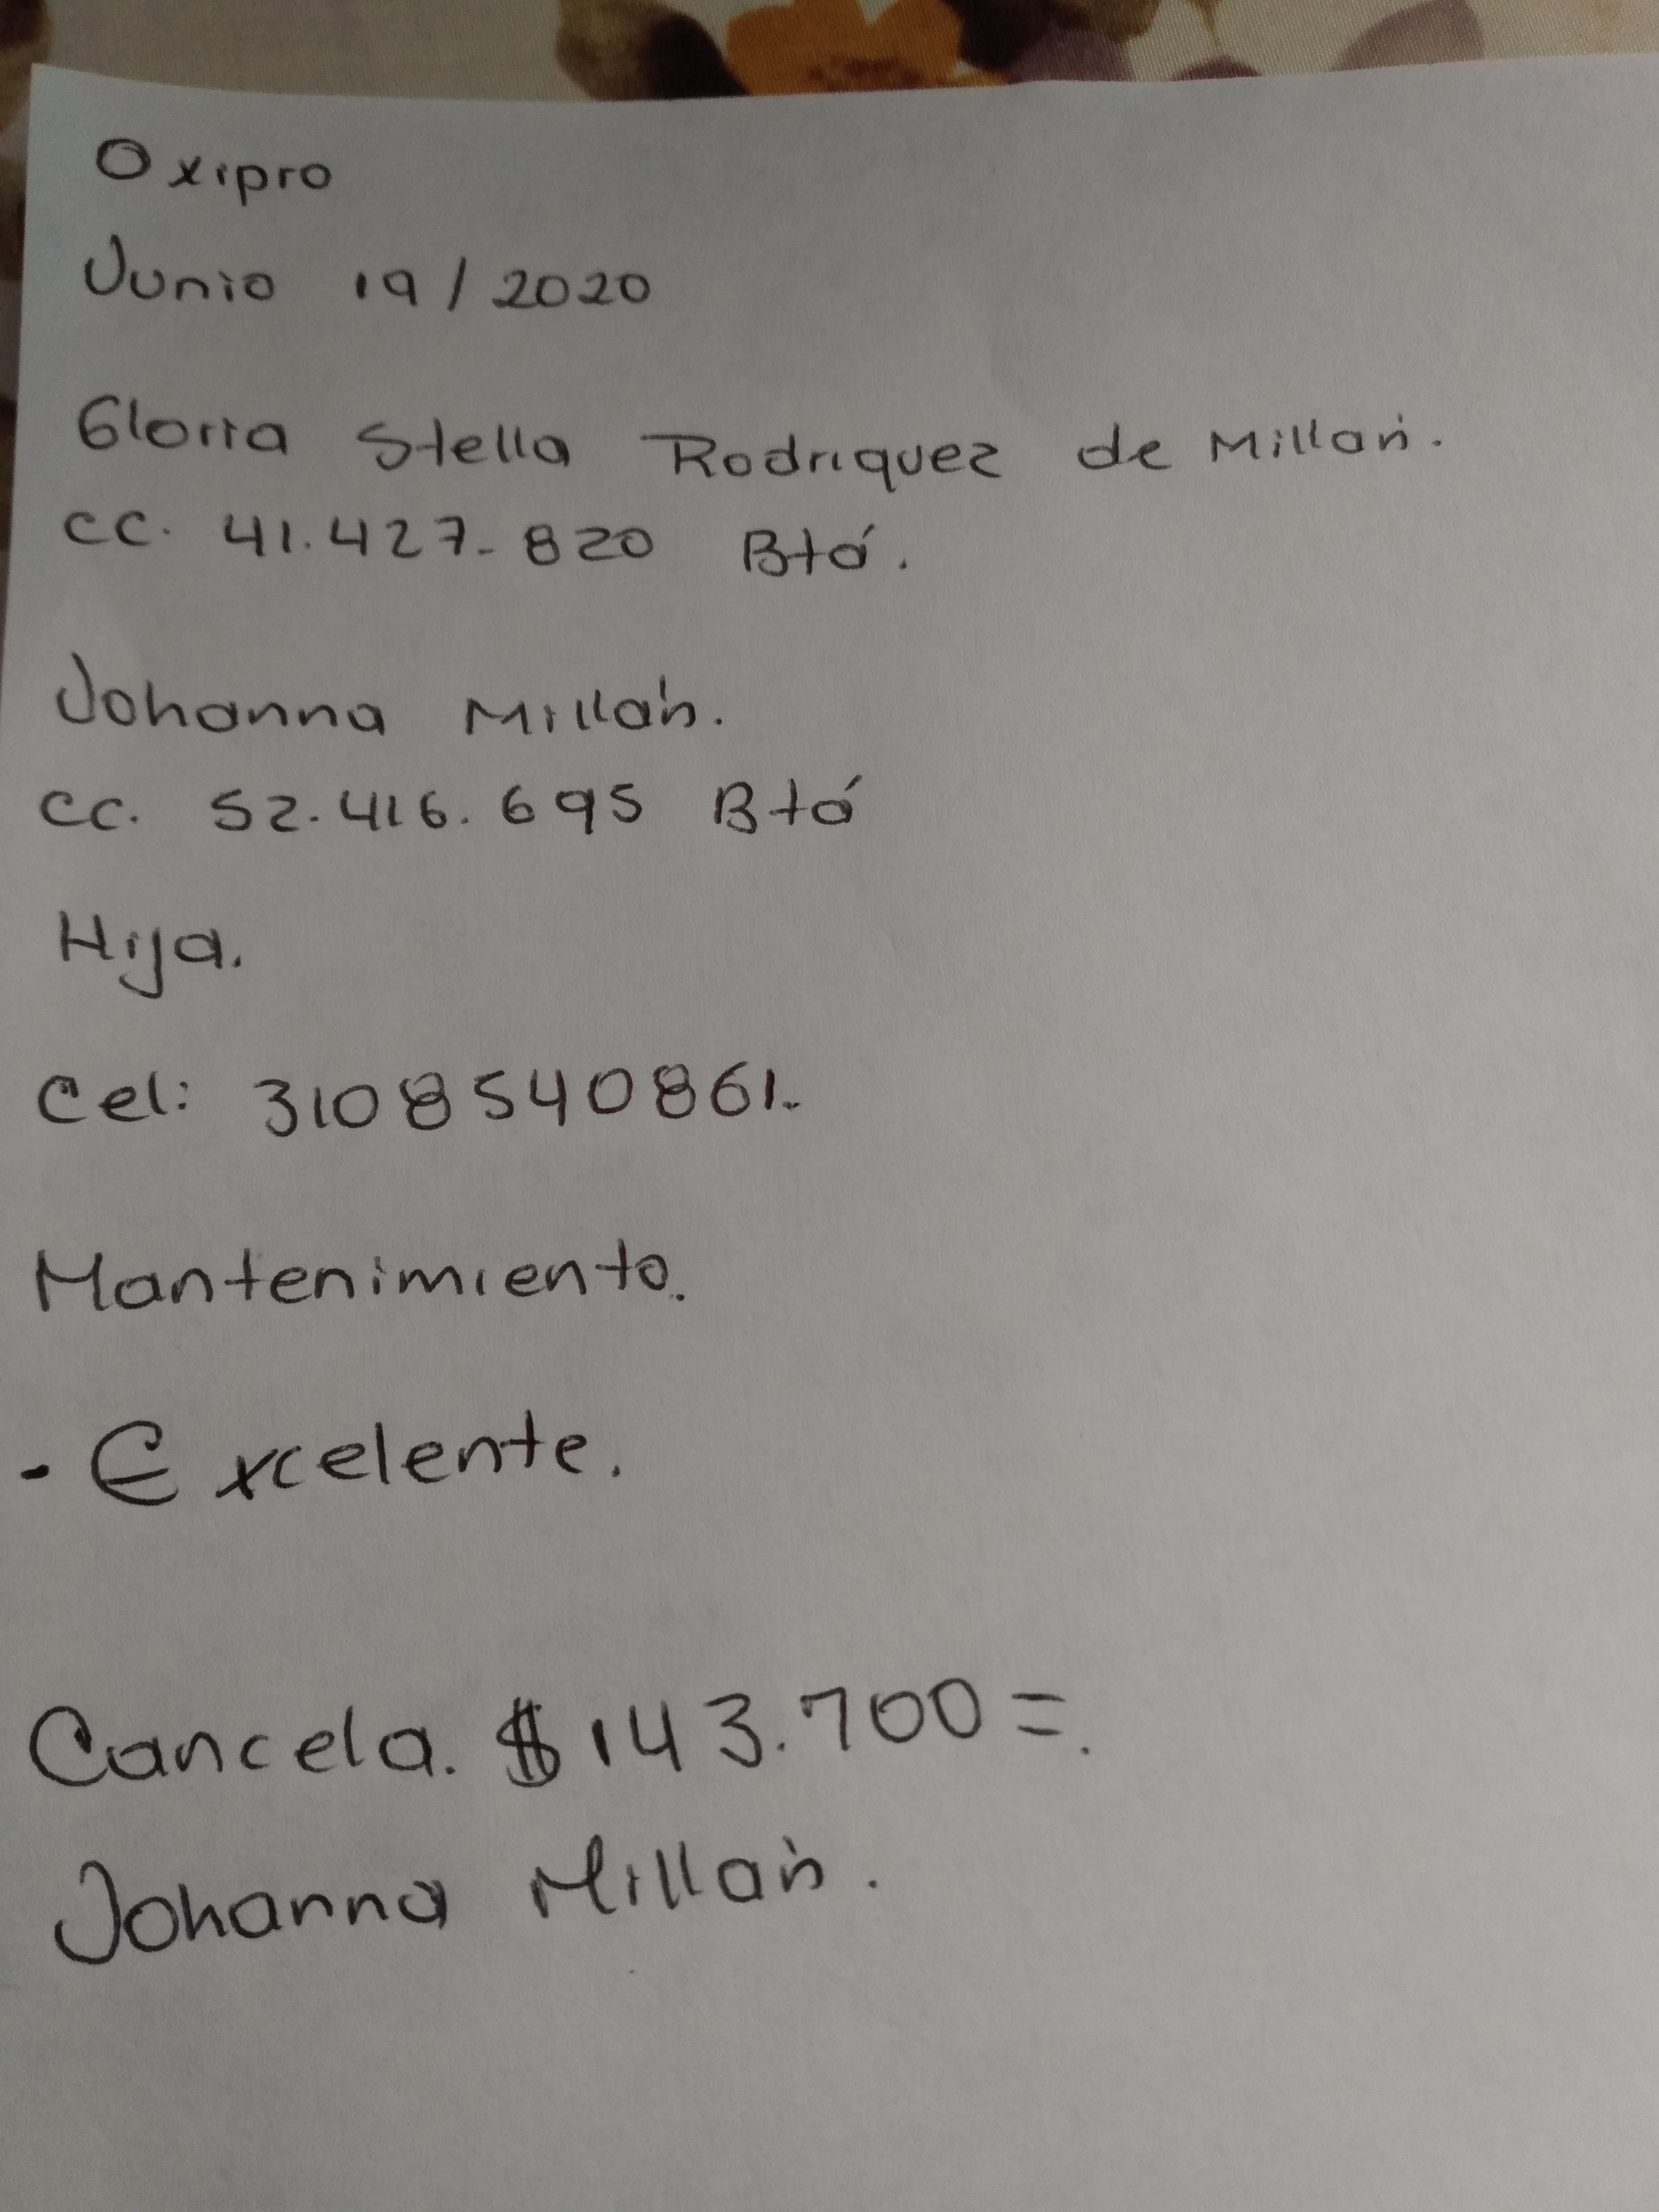 Oxipro
Junio 19/2020
Gloria Stella Rodriguez de Millán.
CC. 41.427.820 Btá.
Johanna Millán.
CC. 52.416.695 Btá
Hija.
Cel: 3108540861.
Mantenimiento.
- Excelente.
Cancela. $143.700=.
Johanna Millán.